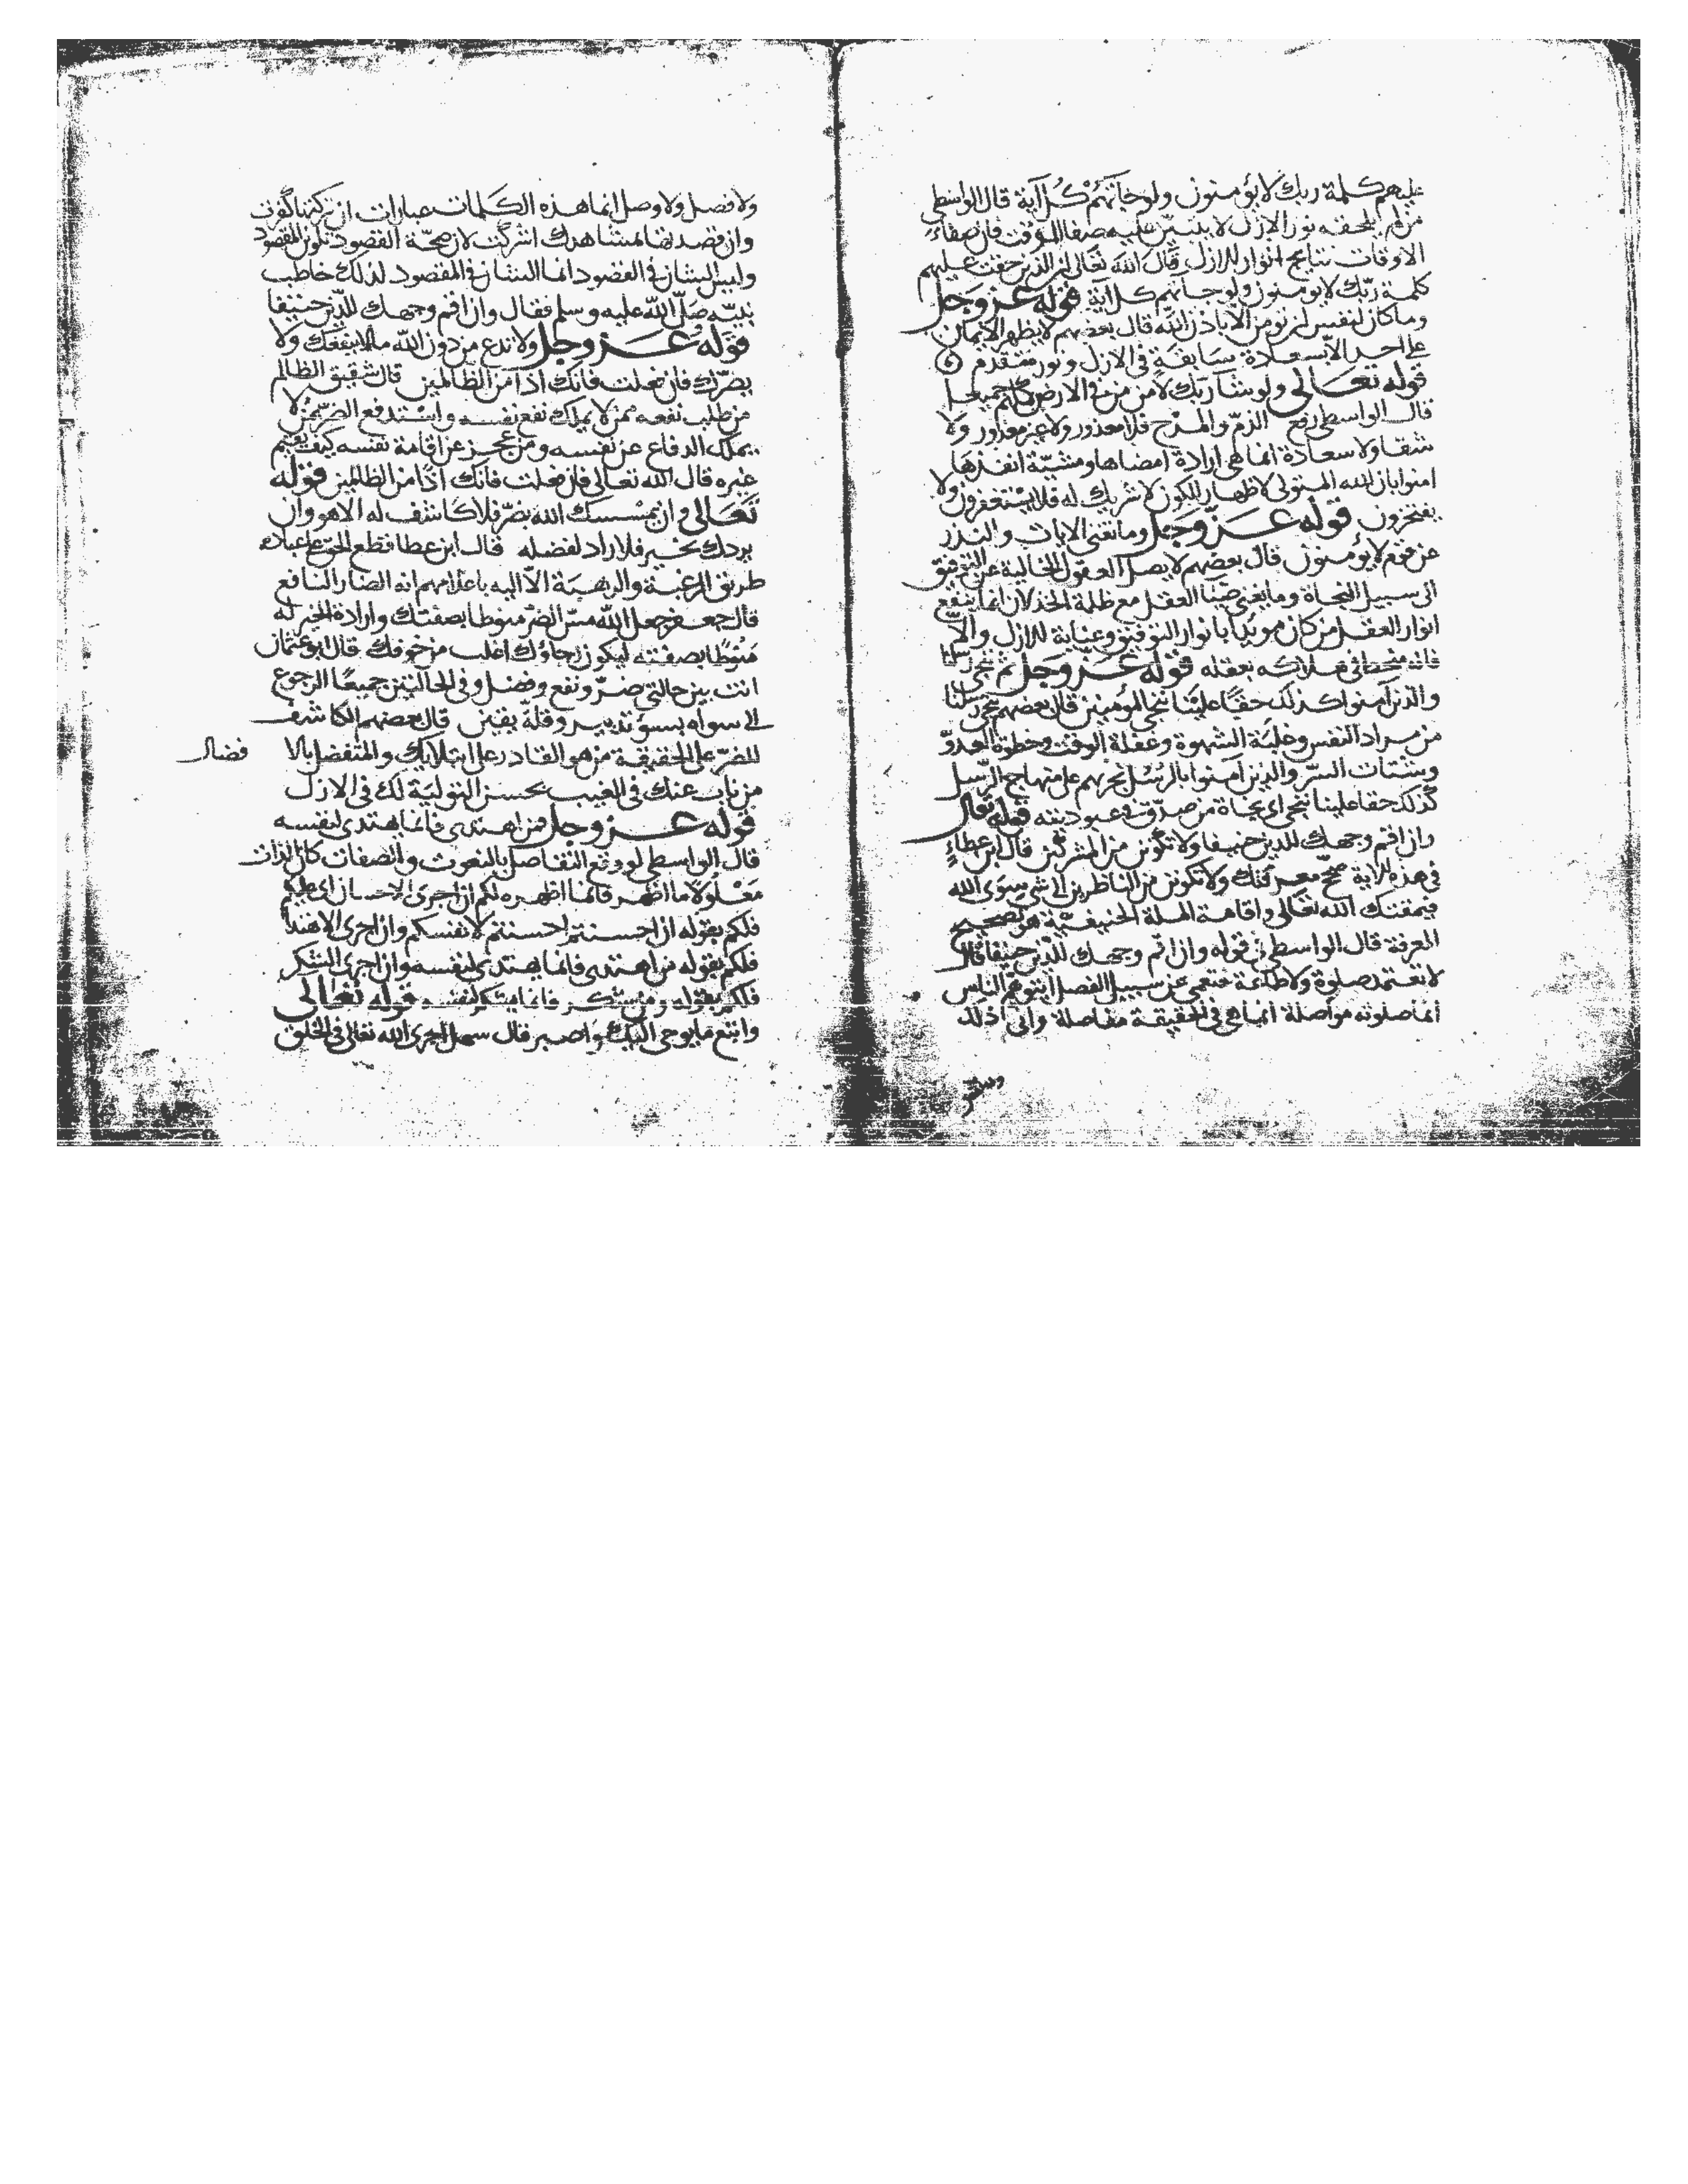 عليهم كلمة ربك لا يؤمنون ولو جآتهم كل آية قال الواسطي
من لم يلحقه نور الازل لا يتبين عليه صفا الوقت فان صفاء
الاوقات نتايج انوار الازل قال الله تعالى ان الذين حقت عليهم
كلمة ربك لا يومنون ولو جاتهم كل آية قوله عز وجل
وما كان لنفس ان تومن الا باذن الله قال بعضهم لا يظهر الايمان
على احد الا بسعادة سابقة في الازل ونور متقدم
قوله تعالى ولو شا ربك لآمن من في الارض كلهم جميعا
قال الواسطي رفع الذم والمدح فلا معذور ولا غير معذور ولا
شقا ولا سعادة انما هي ارادة امضاها ومشيّة انفذها
امنوا بان الله المتولى لاظهار الكون لا شريك له فلا يستعفرون ولا
يفتخرون قوله عز وجل وما تغني الايات والنذر
عن قوم لا يؤمنون قال بعضهم لا يصل العقول الخالية عن التوفيق
الى سبيل النجاة وما يغني ضيا العقل مع ظلمة الخذلان انما ينفع
انوار العقل من كان مويدا بانوار التوفيق وعناية الازل والا
فانه متخبط في هلاكه بعقله قوله عز وجل ثم ننجي رسلنا
والذين آمنوا كذلك حقا علينا ننجي المؤمنين قال بعضهم ننجي رسلنا
من مراد النفس وغلبة الشهوة وغفلة الوقت وخطوة العدوّ
وشتات السرّ والذين آمنوا بالرسل نجريهم على منهاج الرسل
كذلك حقا علينا ننجي اي نجاة من صدق في عبوديته قوله تعالى
وان اقم وجهك للدين حنيفا ولا تكونن من المشركين قال ابن عطاء
في هذه الاية صحّح معرفتك ولا تكونن من الناظرين الى شي سوى الله
فيمقتك الله تعالى واقامة الملة الحنيفية هو تصحيح
المعرفة قال الواسطي في قوله وان اقم وجهك للدين حنيفا قال
لا تعتمد صلوة ولا طاعة فتعمى عن سبيل الفضل ايتوهم الناس
انما صلوته مواصلة انما هي في الحقيقة مفاصلة واني اذلك
ولا فصل ولا وصل انما هذه الكلمات عبارات ان تركتها كفرت
وان قصدتها لمشاهدك اشركت لان صحّة القصود تلون المقصود
وليس الشان في القصود انما الشان في المقصود لذلك خاطب
نبيّه صلّى الله عليه وسلم فقال وان اقم وجهك للدين حنيفا
قوله عز وجل ولا تدع من دون الله ما لا ينفعك ولا
يضرّك فان فعلت فانك اذا من الظالمين قال شقيق الظالم
من طلب نفعه ممن لا يملك نفع نفسه واستدفع الضر ممن لا
يملك الدفاع عن نفسه ومن عجز عن اقامة نفسه كيف يقيم
غيره قال الله تعالى فان فعلت فانك اذًا من الظالمين قوله
تعالى وان يمسسك الله بضرّ فلا كاشف له الا هو وان
يردك بخير فلا راد لفضله قال ابن عطا قطع الحق على عباده
طريق الرغبة والرهبة الا اليه باعلامهم انه الضار النافع
قال جعفر جعل الله مسّ الضرّ منوطا بصفتك وارادة الخير له
منوطًا بصفته ليكون رجاؤك اغلب من خوفك قال ابو عثمان
انت بين حالتي ضرّ ونفع وفضل وفي الحالتين جميعًا الرجوع
الى سواه بسوء تدبير وقلّة يقين قال بعضهم الكاشف
للضرّ على الحقيقة من هو القادر على ابتلايك والمتفضل بالا فضال
من ناب عنك في الغيب بحسن التولية لك في الازل
قوله عز وجل فمن اهتدى فانما يهتدى لنفسه
قال الواسطي لو وقع التفاصل بالنعوت والصفات كان الذات
معلولا ما اظهر فانما اظهره لكم ان اجرى الاحسان
فلكم بقوله ان احسنتم احسنتم لانفسكم وان اجرى الاهتدا
فلكم بقوله من اهتدى فانما يهتدى لنفسه وان اجرى الشكر
فلكم بقوله ومن شكر فانما يشكر لنفسه قوله تعالى
واتبع ما يوحى اليك واصبر قال سهل اجرى الله تعالى في الخلق